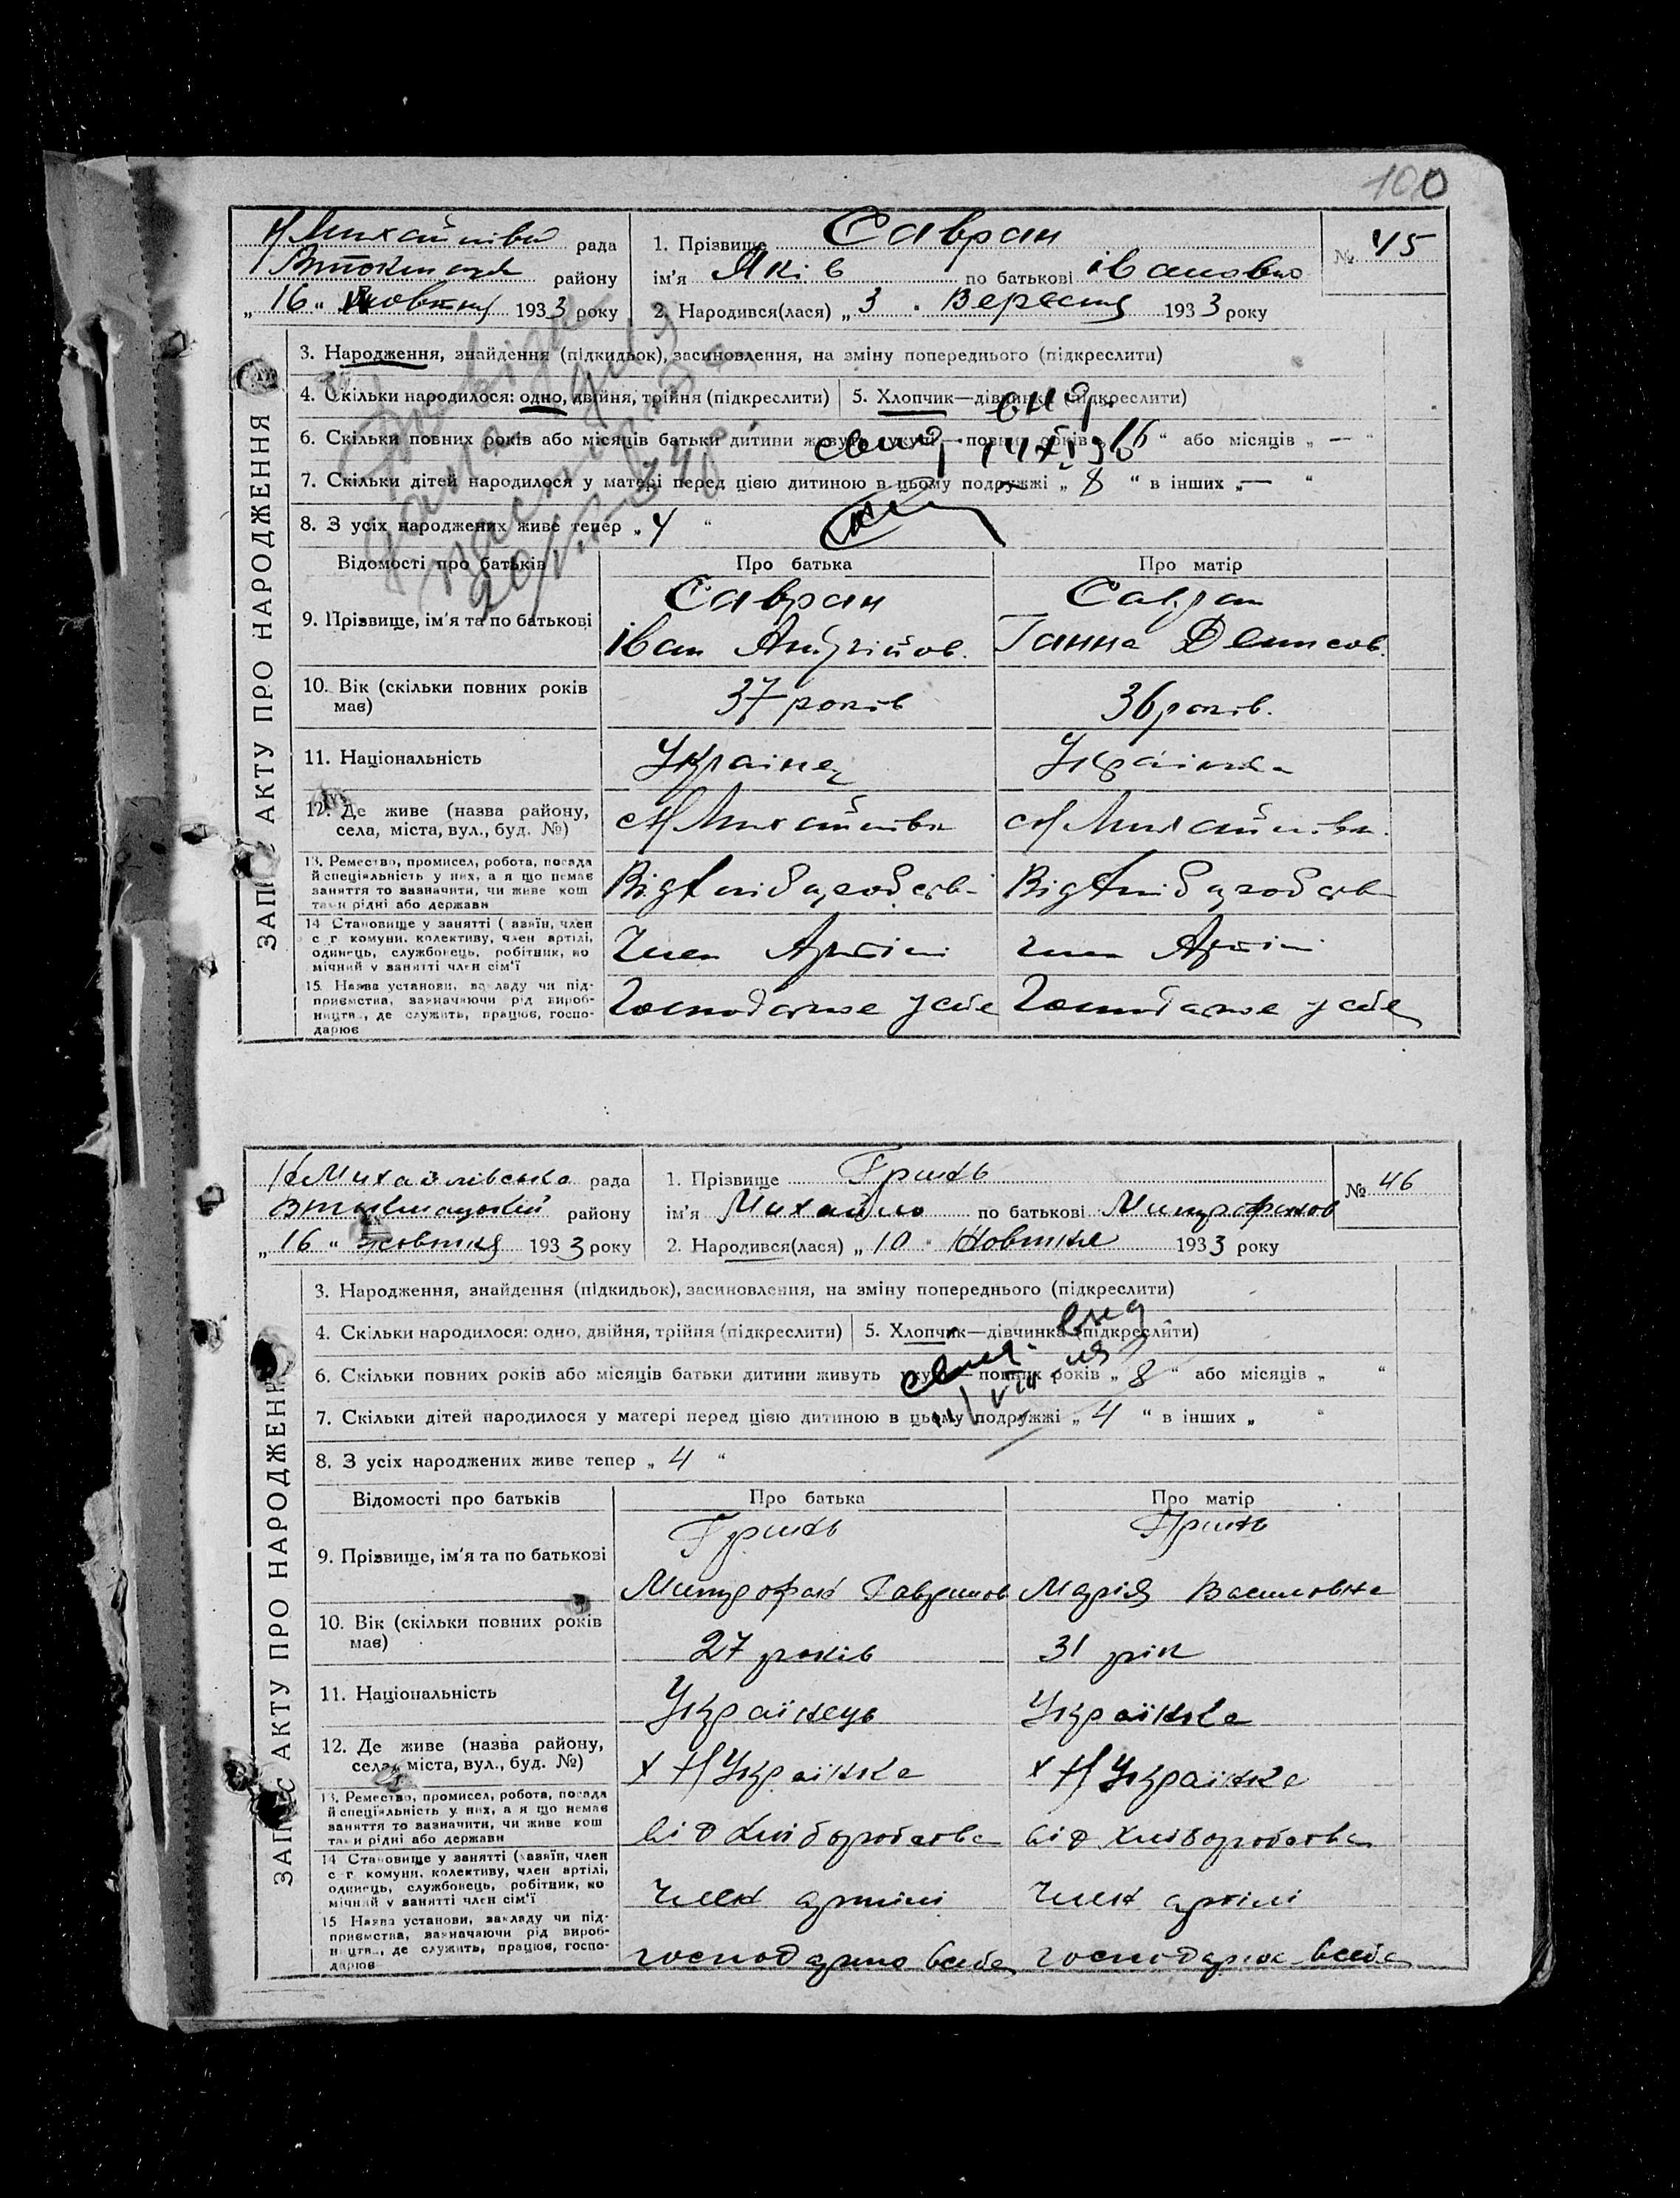 100
Н Михайлівська рада
району
„16“ Жовтня 1933 року
1. Прізвище Савран
ім'я Яків по батькові Іванович
2. Народився(лася) „3 . Вересня 1933 року
№ 45
ЗАПИС АКТУ ПРО НАРОДЖЕННЯ
3. Народження, знайдення (підкидьок), засиновлення, на зміну попереднього (підкреслити)
4. Скільки народилося: одно, двійня, трійня (підкреслити) 5. Хлопчик—дівчинка (підкреслити)
6. Скільки повних років або місяців батьки дитини живуть укупі—повних років „16“ або місяців „—“
7. Скільки дітей народилося у матері перед цією дитиною в цьому подружжі „8“ в інших „—“
8. З усіх народжених живе тепер „4“
Відомості про батьків Про батька Про матір
9. Прізвище, ім'я та по батькові Савран Савран
Іван Андрійов. Ганна Денисов.
10. Вік (скільки повних років має) 37 років 36 років.
11. Національність Українец Українка
12. Де живе (назва району, села, міста, вул., буд. №) с Н Михайлівка с Н Михайлівка.
13. Ремество, промисел, робота, посада й спеціяльність у них, а якщо немає заняття то зазначити, чи живе коштами рідні або держави Від хліборобства Від хліборобства
14 Становище у занятті (хазяїн, член с г комуни, колективу, член артілі, одинець, службовець, робітник, помічний у занятті член сім'ї Член Артілі член Артілі
15. Назва установи, закладу чи підприємства, зазначаючи рід виробництва, де служить, працює, господарює Господарює у себе Господарює у себе
Н Михайлівська рада
району
„16“ жовтня 1933 року
1. Прізвище Гринь
ім'я Михайло по батькові Митрофанов
2. Народився(лася) „10“ Жовтня 1933 року
№ 46
ЗАПИС АКТУ ПРО НАРОДЖЕННЯ
3. Народження, знайдення (підкидьок), засиновлення, на зміну попереднього (підкреслити)
4. Скільки народилося: одно, двійня, трійня (підкреслити) 5. Хлопчик—дівчинка (підкреслити)
6. Скільки повних років або місяців батьки дитини живуть укупі—повних років „8“ або місяців „ “
7. Скільки дітей народилося у матері перед цією дитиною в цьому подружжі „4“ в інших „ “
8. З усіх народжених живе тепер „4“
Відомості про батьків Про батька Про матір
9. Прізвище, ім'я та по батькові Гринь Гринь
Митрофан Гаврилов Марія Василовна
10. Вік (скільки повних років має) 27 років 31 рік
11. Національність Українець Українка
12. Де живе (назва району, села, міста, вул., буд. №) х Н Українка х Н Українка
13. Ремество, промисел, робота, посада й спеціяльність у них, а якщо немає заняття то зазначити, чи живе коштами рідні або держави від хліборобства від хліборобства
14 Становище у занятті (хазяїн, член с г комуни, колективу, член артілі, одинець, службовець, робітник, помічний у занятті член сім'ї Член артілі Член артілі
15 Назва установи, закладу чи підприємства, зазначаючи рід виробництва, де служить, працює, господарює господарює в себе господарює в себе